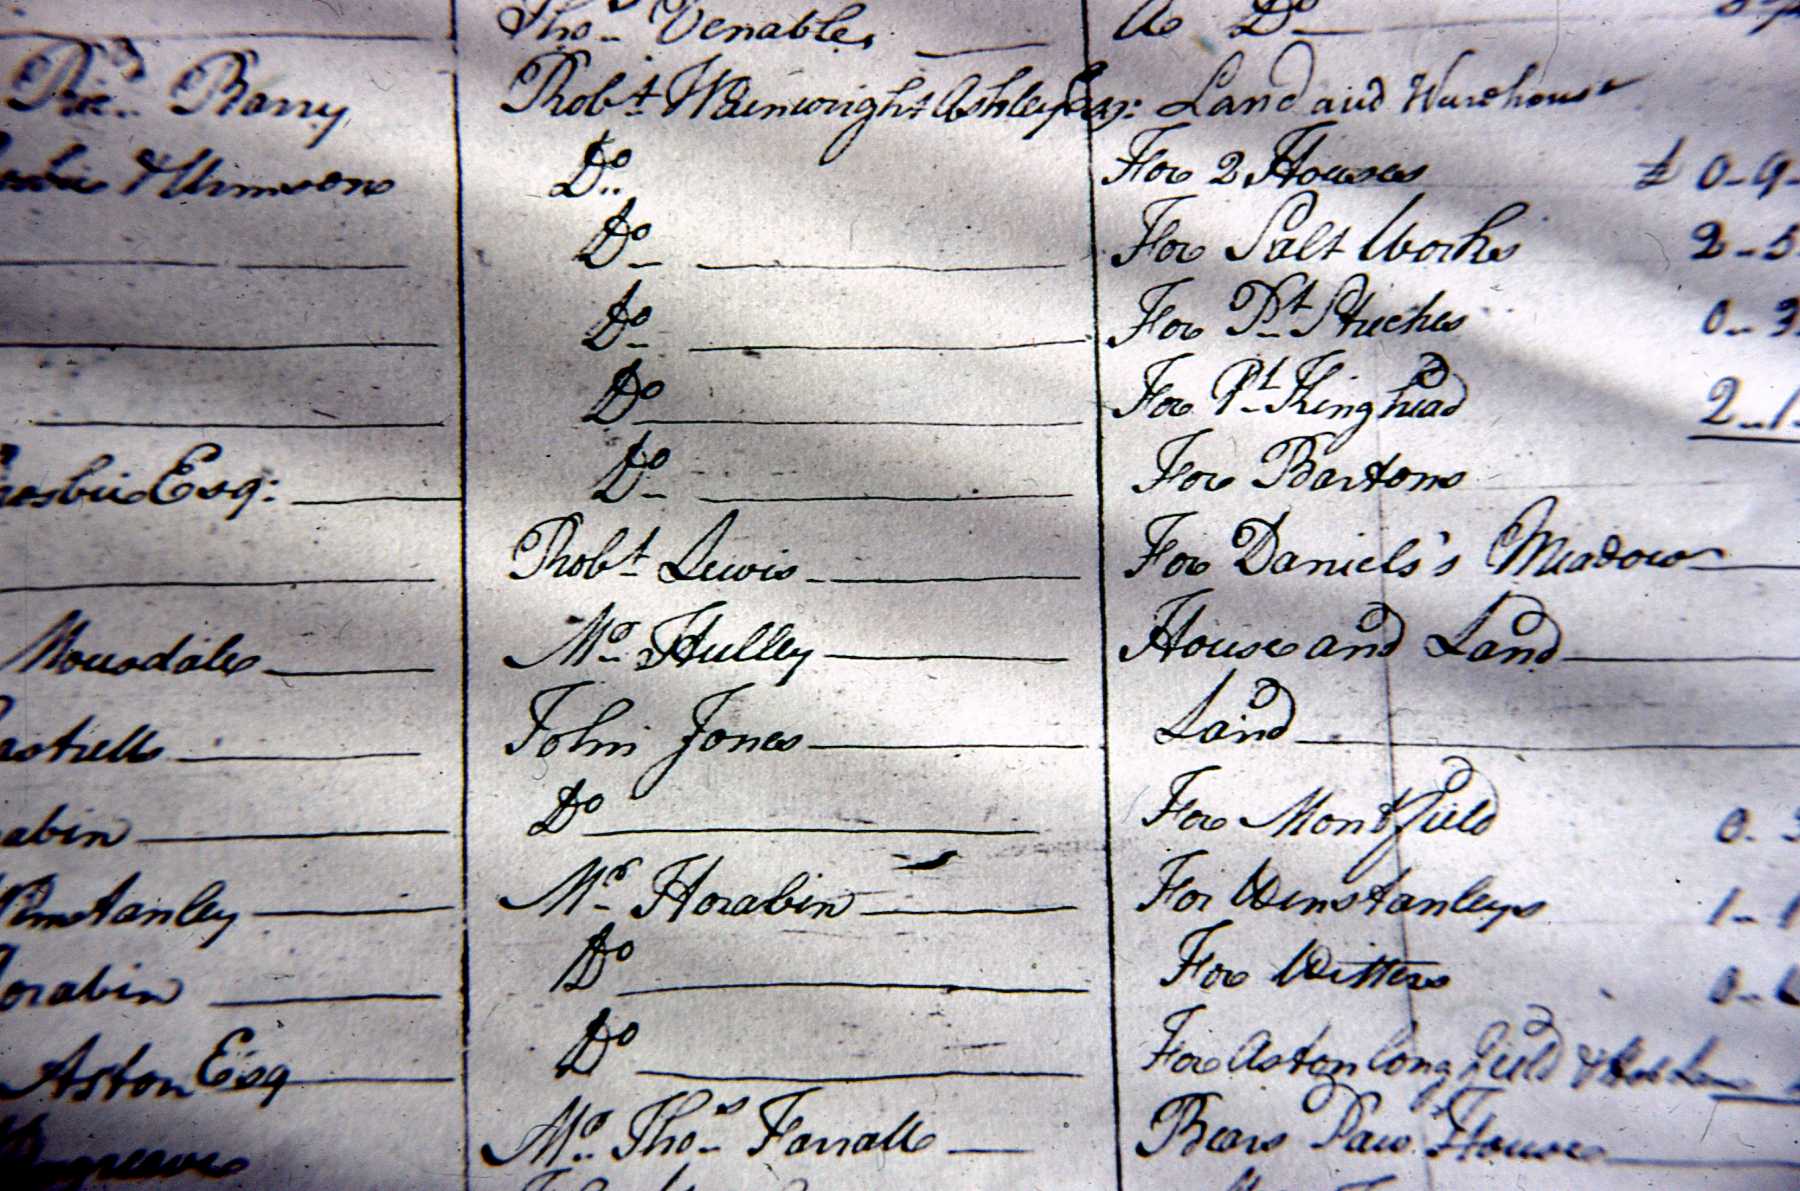 Thos. Venables A Do
Ric. Barry Robt. Wainwright Ashley Esqr: Land and Warehouse
Do. For 2 Houses £ 0-9-
Do For Salt Works 2-5-
Do For Pt. Stiches 0-3
Do For Pt. Kinghead 2-1-
Esq: Do For Bartons
Robt. Lewis For Daniels's Meadow
Mousdale Mr. Hulley House and Land
John Jones Land
Do For Montfield 0-3
Winstanley Mr. Horabin For Winstanleys 1-1
Horabin Do For Witters 0-
Aston Esq Do For Aston long Field &
Mr. Thos. Farrall Bears Paw House